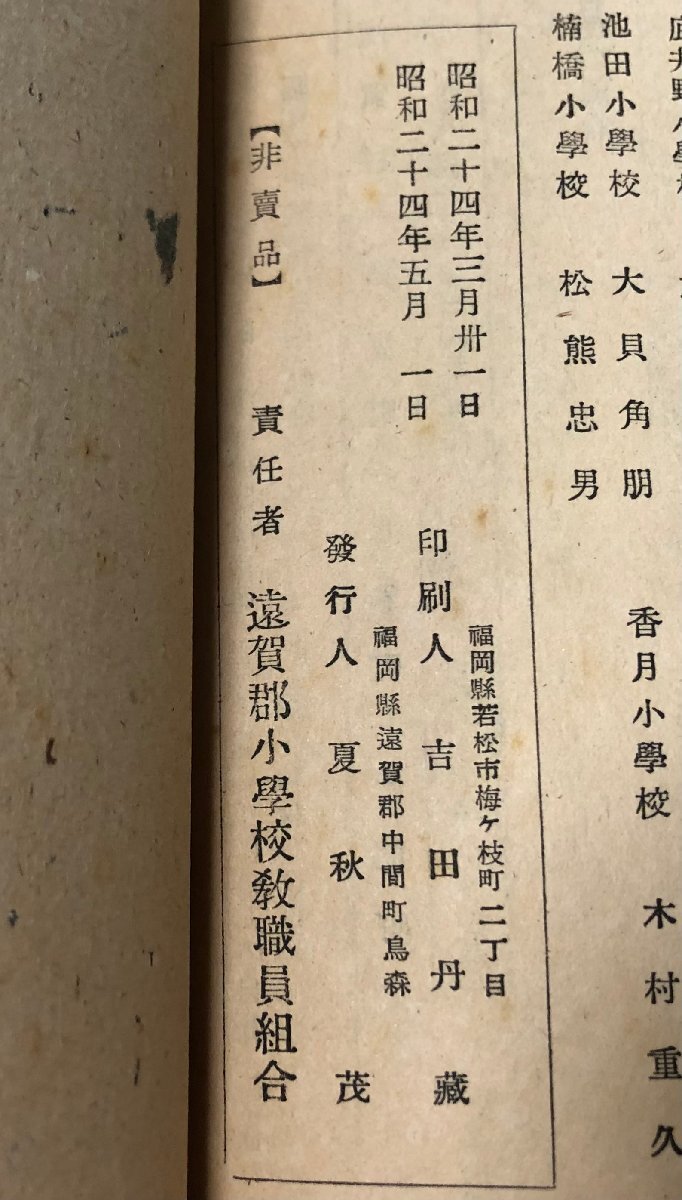 池田小學校 大貝角朋
楠橋小學校 松熊忠男
香月小學校 木村重久
昭和二十四年三月卅一日
昭和二十四年五月 一日
福岡縣若松市梅ヶ枝町二丁目
印刷人 吉田丹藏
福岡縣遠賀郡中間町鳥森
發行人 夏秋 茂
【非賣品】 責任者 遠賀郡小學校敎職員組合